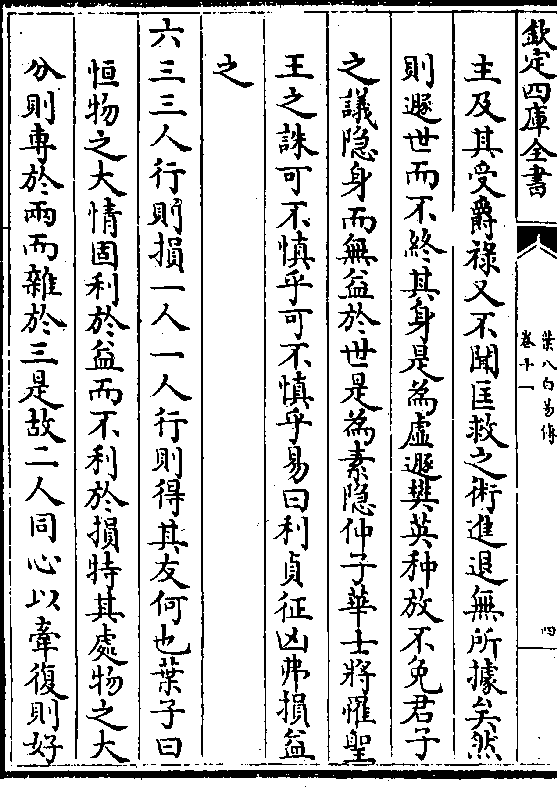 欽定四庫全書
葉八白易傳
卷十一
四
主及其受爵祿又不聞匡救之術進退無所據矣然
則遯世而不終其身是為虛遯樊英种放不免君子
之議隠身而無益於世是為素隠仲子華士將懼聖
王之誅可不慎乎可不慎乎易曰利貞征凶弗損益
之
六三三人行則損一人一人行則得其友何也葉子曰
恒物之大情固利於益而不利於損特其處物之大
分則專於兩而雜於三是故二人同心以牽復則好